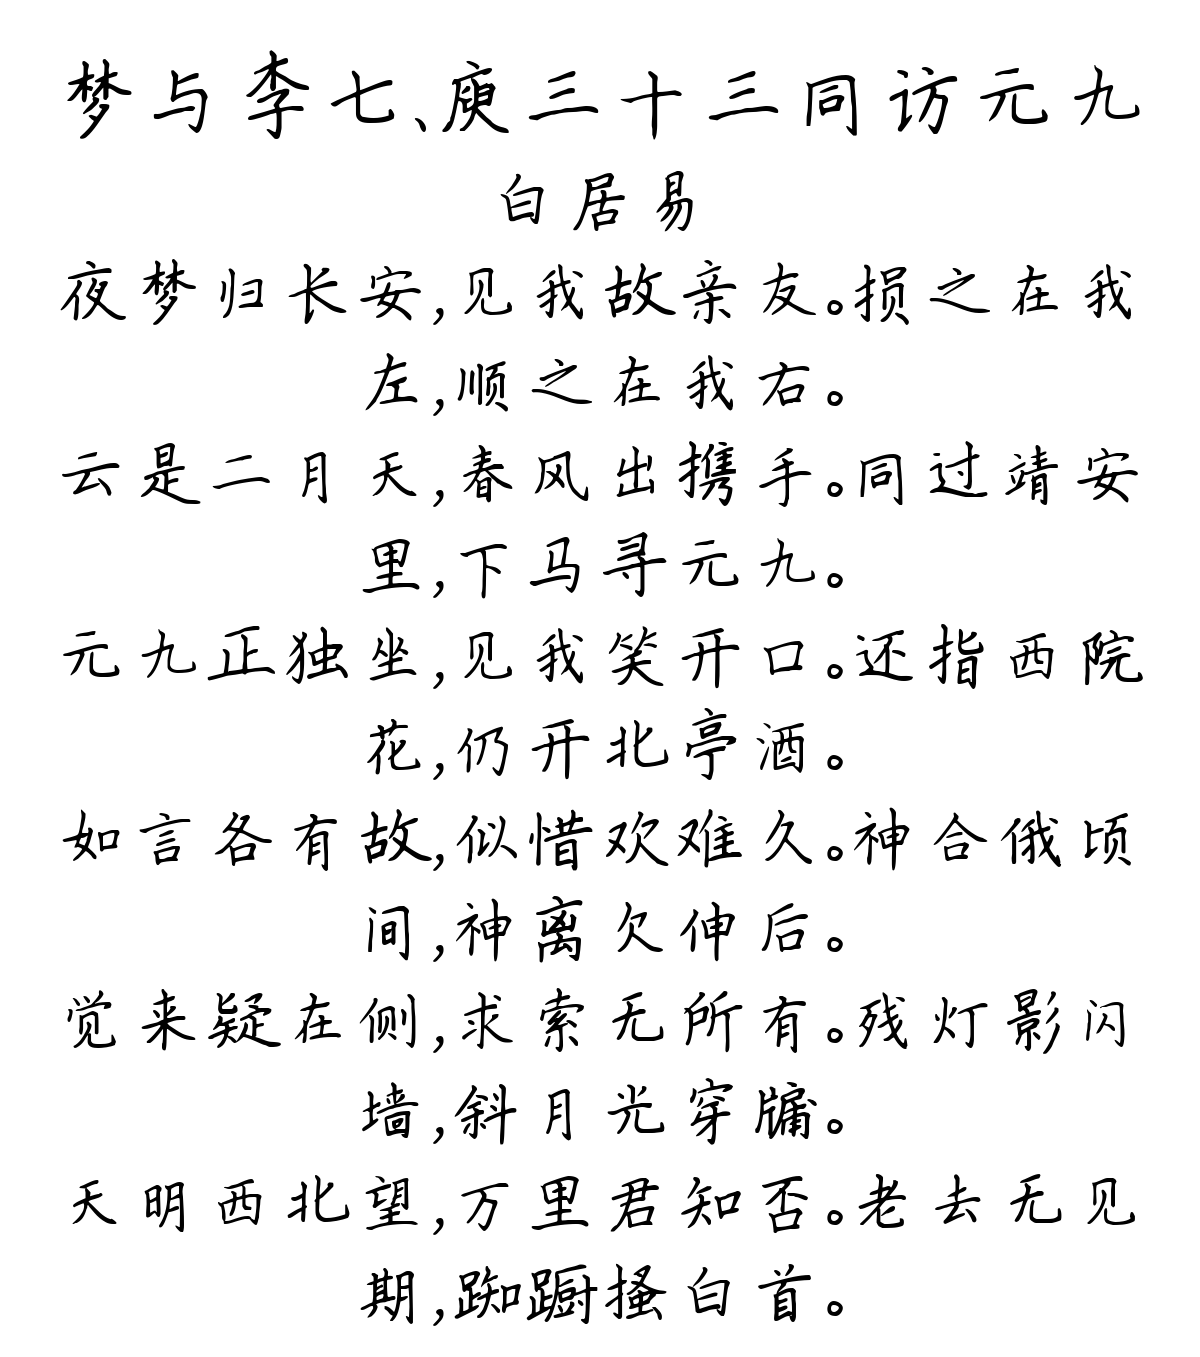 梦与李七、庾三十三同访元九
白居易
夜梦归长安,见我故亲友。损之在我
左,顺之在我右。
云是二月天,春风出携手。同过靖安
里,下马寻元九。
元九正独坐,见我笑开口。还指西院
花,仍开北亭酒。
如言各有故,似惜欢难久。神合俄顷
间,神离欠伸后。
觉来疑在侧,求索无所有。残灯影闪
墙,斜月光穿牖。
天明西北望,万里君知否。老去无见
期,踟蹰搔白首。